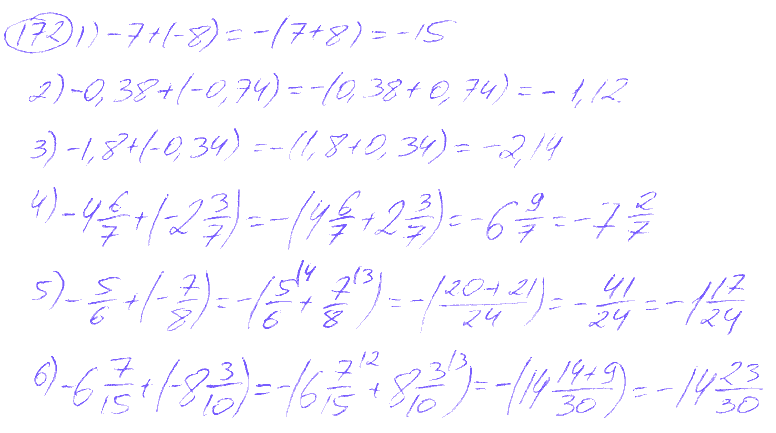 172 1) -7+(-8) = -(7+8) = -15
2) -0,38+(-0,74) = -(0,38+0,74) = -1,12.
3) -1,8+(-0,34) = -(1,8+0,34) = -2,14
4) -4 6/7 + (-2 3/7) = -(4 6/7 + 2 3/7) = -6 9/7 = -7 2/7
5) -5/6 + (-7/8) = -(5/6 \4 + 7/8 \3) = -(20+21/24) = -41/24 = -1 17/24
6) -6 7/15 + (-8 3/10) = -(6 7/15 \2 + 8 3/10 \3) = -(14 14+9/30) = -14 23/30